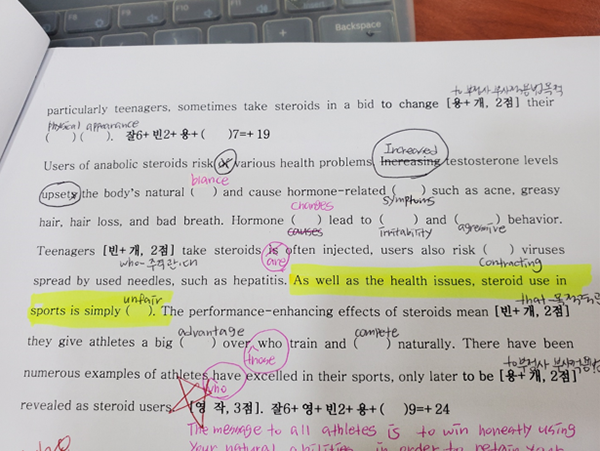 Backspace
to부정사 부사적용법 목적
particularly teenagers, sometimes take steroids in a bid to change [용+개, 2점] their
physical appearance
( ) ( ). 잘6+ 빈2+ 용+( )7=+19
Increased
Users of anabolic steroids risk various health problems. Increasing testosterone levels
upsets the body's natural ( ) and cause hormone-related ( ) such as acne, greasy
blance symptoms
hair, hair loss, and bad breath. Hormone ( ) lead to ( ) and ( ) behavior.
charges causes irritability agressive
Teenagers [빈+개, 2점] take steroids is often injected, users also risk ( ) viruses
who-주격관.대 are contracting
spread by used needles, such as hepatitis. As well as the health issues, steroid use in
unfair that-목적
sports is simply ( ). The performance-enhancing effects of steroids mean [빈+개, 2점]
advantage compete
they give athletes a big ( ) over who train and ( ) naturally. There have been
those to부정사 부사적용법
numerous examples of athletes have excelled in their sports, only later to be [용+개, 2점]
who
revealed as steroid users. [영 작, 3점]. 잘6+ 영+ 빈2+ 용+( )9=+24
The message to all athletes is to win honestly using
your natural abilities in order to retain your